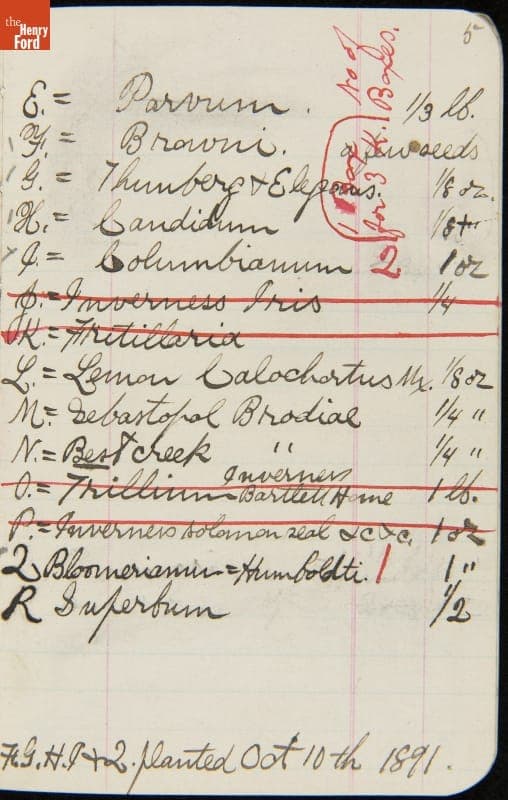 the
Henry
Ford
5
No of
Boxes.
1 Box
2 for 3 K.
E. = Parvum. 1/3 lb.
F. = Browni. a few seeds
G. = Thunberg & Elegans. 1/8 oz.
H. = Candidum 1/8 "
I. = Columbianum 1 oz
J. = Inverness Iris 1/4
K. = Fritillaria
L. = Lemon Calochortus Mx. 1/8 oz
M. = Sebastopol Brodiae 1/4 "
N. = Best creek " 1/4 "
Inverness
O. = Trillium Bartlett Home 1 lb.
P. = Inverness solomon seal &c &c. 1 oz
Q Bloomerianum = Humboldti. 1 1 "
R Superbum 1/2
F. G. H. I & Q. planted Oct 10th 1891.